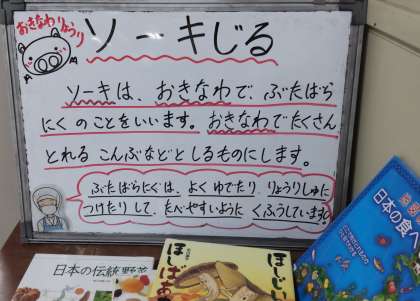 おきなわりょうり
ソーキじる
ソーキは、おきなわで ぶたばら
にく のことをいいます。おきなわでたくさん
とれる こんぶなどと しるものにします。
ぶたばらにくは、よく ゆでたり りょうりしゅに
つけたり して、たべやすいように くふうしています。
日本の伝統野菜
ほしばあ
ほしじい
日本の食べ